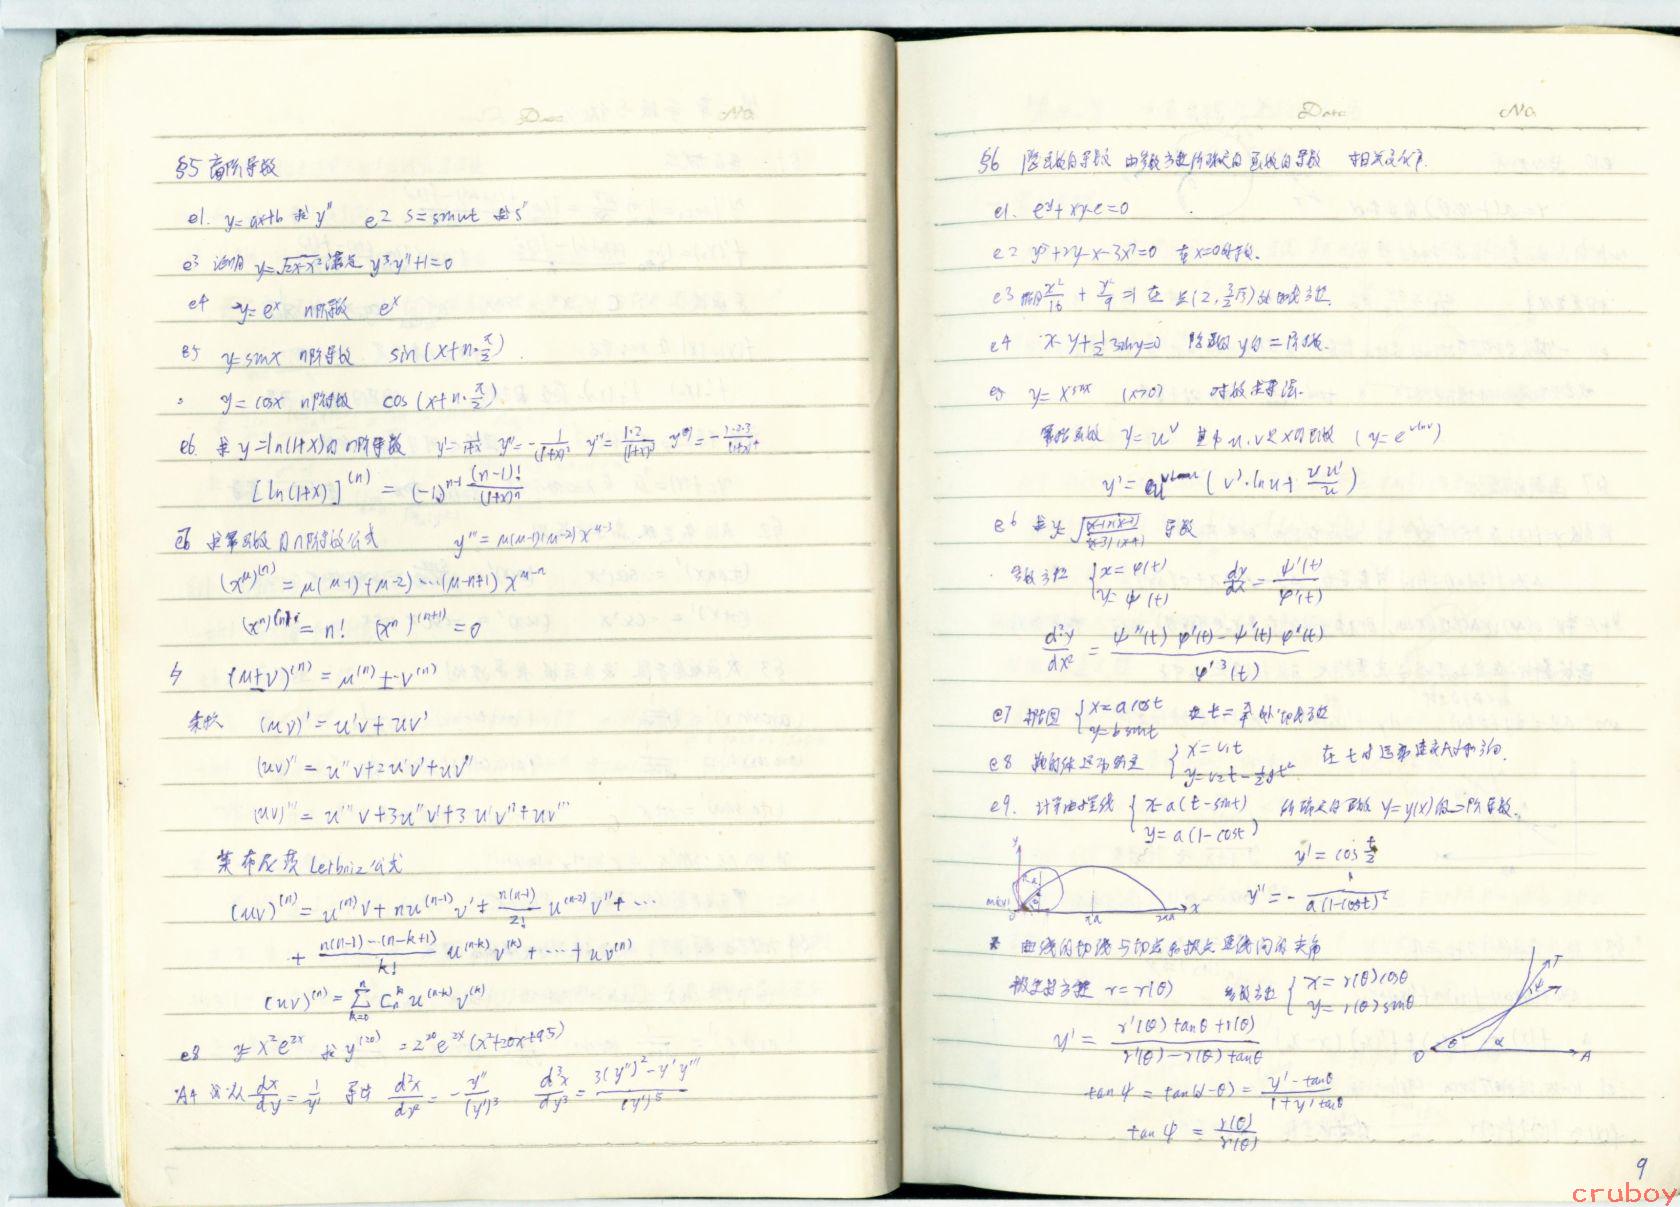 Date No.
§5 高阶导数
e1. y=ax+b 求 y″ e2 s=sinωt 求 s″
e3 证明 y=√(2x-x²) 满足 y³·y″+1=0
e4 y=eˣ n阶导数 eˣ
e5 y=sinx n阶导数 sin(x+n·π/2).
y=cosx n阶导数 cos(x+n·π/2).
e6. 求 y=ln(1+x)的n阶导数 y′=1/(1+x) y″=-1/(1+x)² y‴=1·2/(1+x)³ y⁽⁴⁾=-1·2·3/(1+x)⁴
[ln(1+x)]⁽ⁿ⁾ = (-1)ⁿ⁻¹ (n-1)!/(1+x)ⁿ
e6 求幂函数的n阶导数公式 y‴=μ(μ-1)(μ-2)x^(μ-3)
(x^μ)⁽ⁿ⁾ = μ(μ-1)(μ-2)…(μ-n+1) x^(μ-n)
(xⁿ)⁽ⁿ⁾ = n! (xⁿ)⁽ⁿ⁺¹⁾ = 0
(u±v)⁽ⁿ⁾ = u⁽ⁿ⁾ ± v⁽ⁿ⁾
乘积 (uv)′ = u′v+uv′
(uv)″ = u″v+2u′v′+uv″
(uv)‴ = u‴v+3u″v′+3u′v″+uv‴
莱布尼茨 Leibniz 公式
(uv)⁽ⁿ⁾ = u⁽ⁿ⁾v+nu⁽ⁿ⁻¹⁾v′+ n(n-1)/2! u⁽ⁿ⁻²⁾v″+…
+ n(n-1)…(n-k+1)/k! u⁽ⁿ⁻ᵏ⁾v⁽ᵏ⁾+…+uv⁽ⁿ⁾
(uv)⁽ⁿ⁾ = Σ(k=0,n) Cₙᵏ u⁽ⁿ⁻ᵏ⁾v⁽ᵏ⁾
e8 y=x²e²ˣ 求y⁽²⁰⁾ =2²⁰e²ˣ(x²+20x+95)
A4 试从 dx/dy=1/y′ 导出 d²x/dy²=-y″/(y′)³ d³x/dy³=(3(y″)²-y′y‴)/(y′)⁵
Date No.
§6 隐函数的导数 由参数方程所确定的函数的导数 相关变化率.
e1. eʸ+xy-e=0
e2 y⁵+2y-x-3x⁷=0 在x=0导数.
e3 x²/16 + y²/9 =1 在点(2, 3/2√3)处的切线方程.
e4 x-y+1/2 siny=0 隐函数 y的二阶导数.
e5 y=x^sinx (x>0) 对数求导法.
幂指函数 y=uᵛ 其中u.v是x的函数 (y=e^(vlnu))
y′= e^(vlnu) (v′·lnu+ vu′/u)
e6 求y=√((x-1)(x-2)/((x-3)(x-4))) 导数
参数方程 {x=φ(t) y=ψ(t) dy/dx = ψ′(t)/φ′(t)
d²y/dx² = (ψ″(t)φ′(t)-ψ′(t)φ″(t))/φ′³(t)
e7 椭圆 {x=acost y=bsint 在t=π/4处切线方程
e8 抛射体运动轨迹 {x=v₁t y=v₂t-1/2gt² 在t时运动速度大小和方向.
e9. 计算由摆线 {x=a(t-sint) y=a(1-cost) 所确定的函数 y=y(x)的二阶导数.
y′=cot t/2
y″=-1/(a(1-cost)²)
y x O πa 2πa
* 曲线的切线与切点和极点连线间的夹角
极坐标方程 r=r(θ) 参数方程 {x=r(θ)cosθ y=r(θ)sinθ
y′ = (r′(θ)tanθ+r(θ))/(r′(θ)-r(θ)tanθ)
O θ α A T ψ
tanψ = tan(α-θ) = (y′-tanθ)/(1+y′tanθ)
tanψ = r(θ)/r′(θ)
9
cruboy